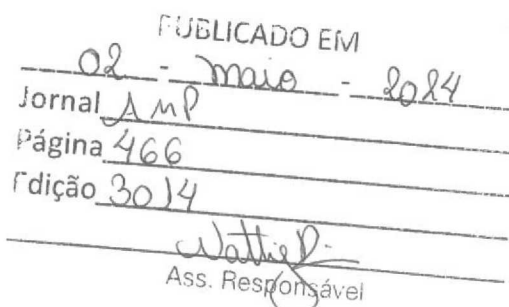 PUBLICADO EM
02 - maio - 2024
Jornal AMP
Página 466
Edição 3014
Ass. Responsável